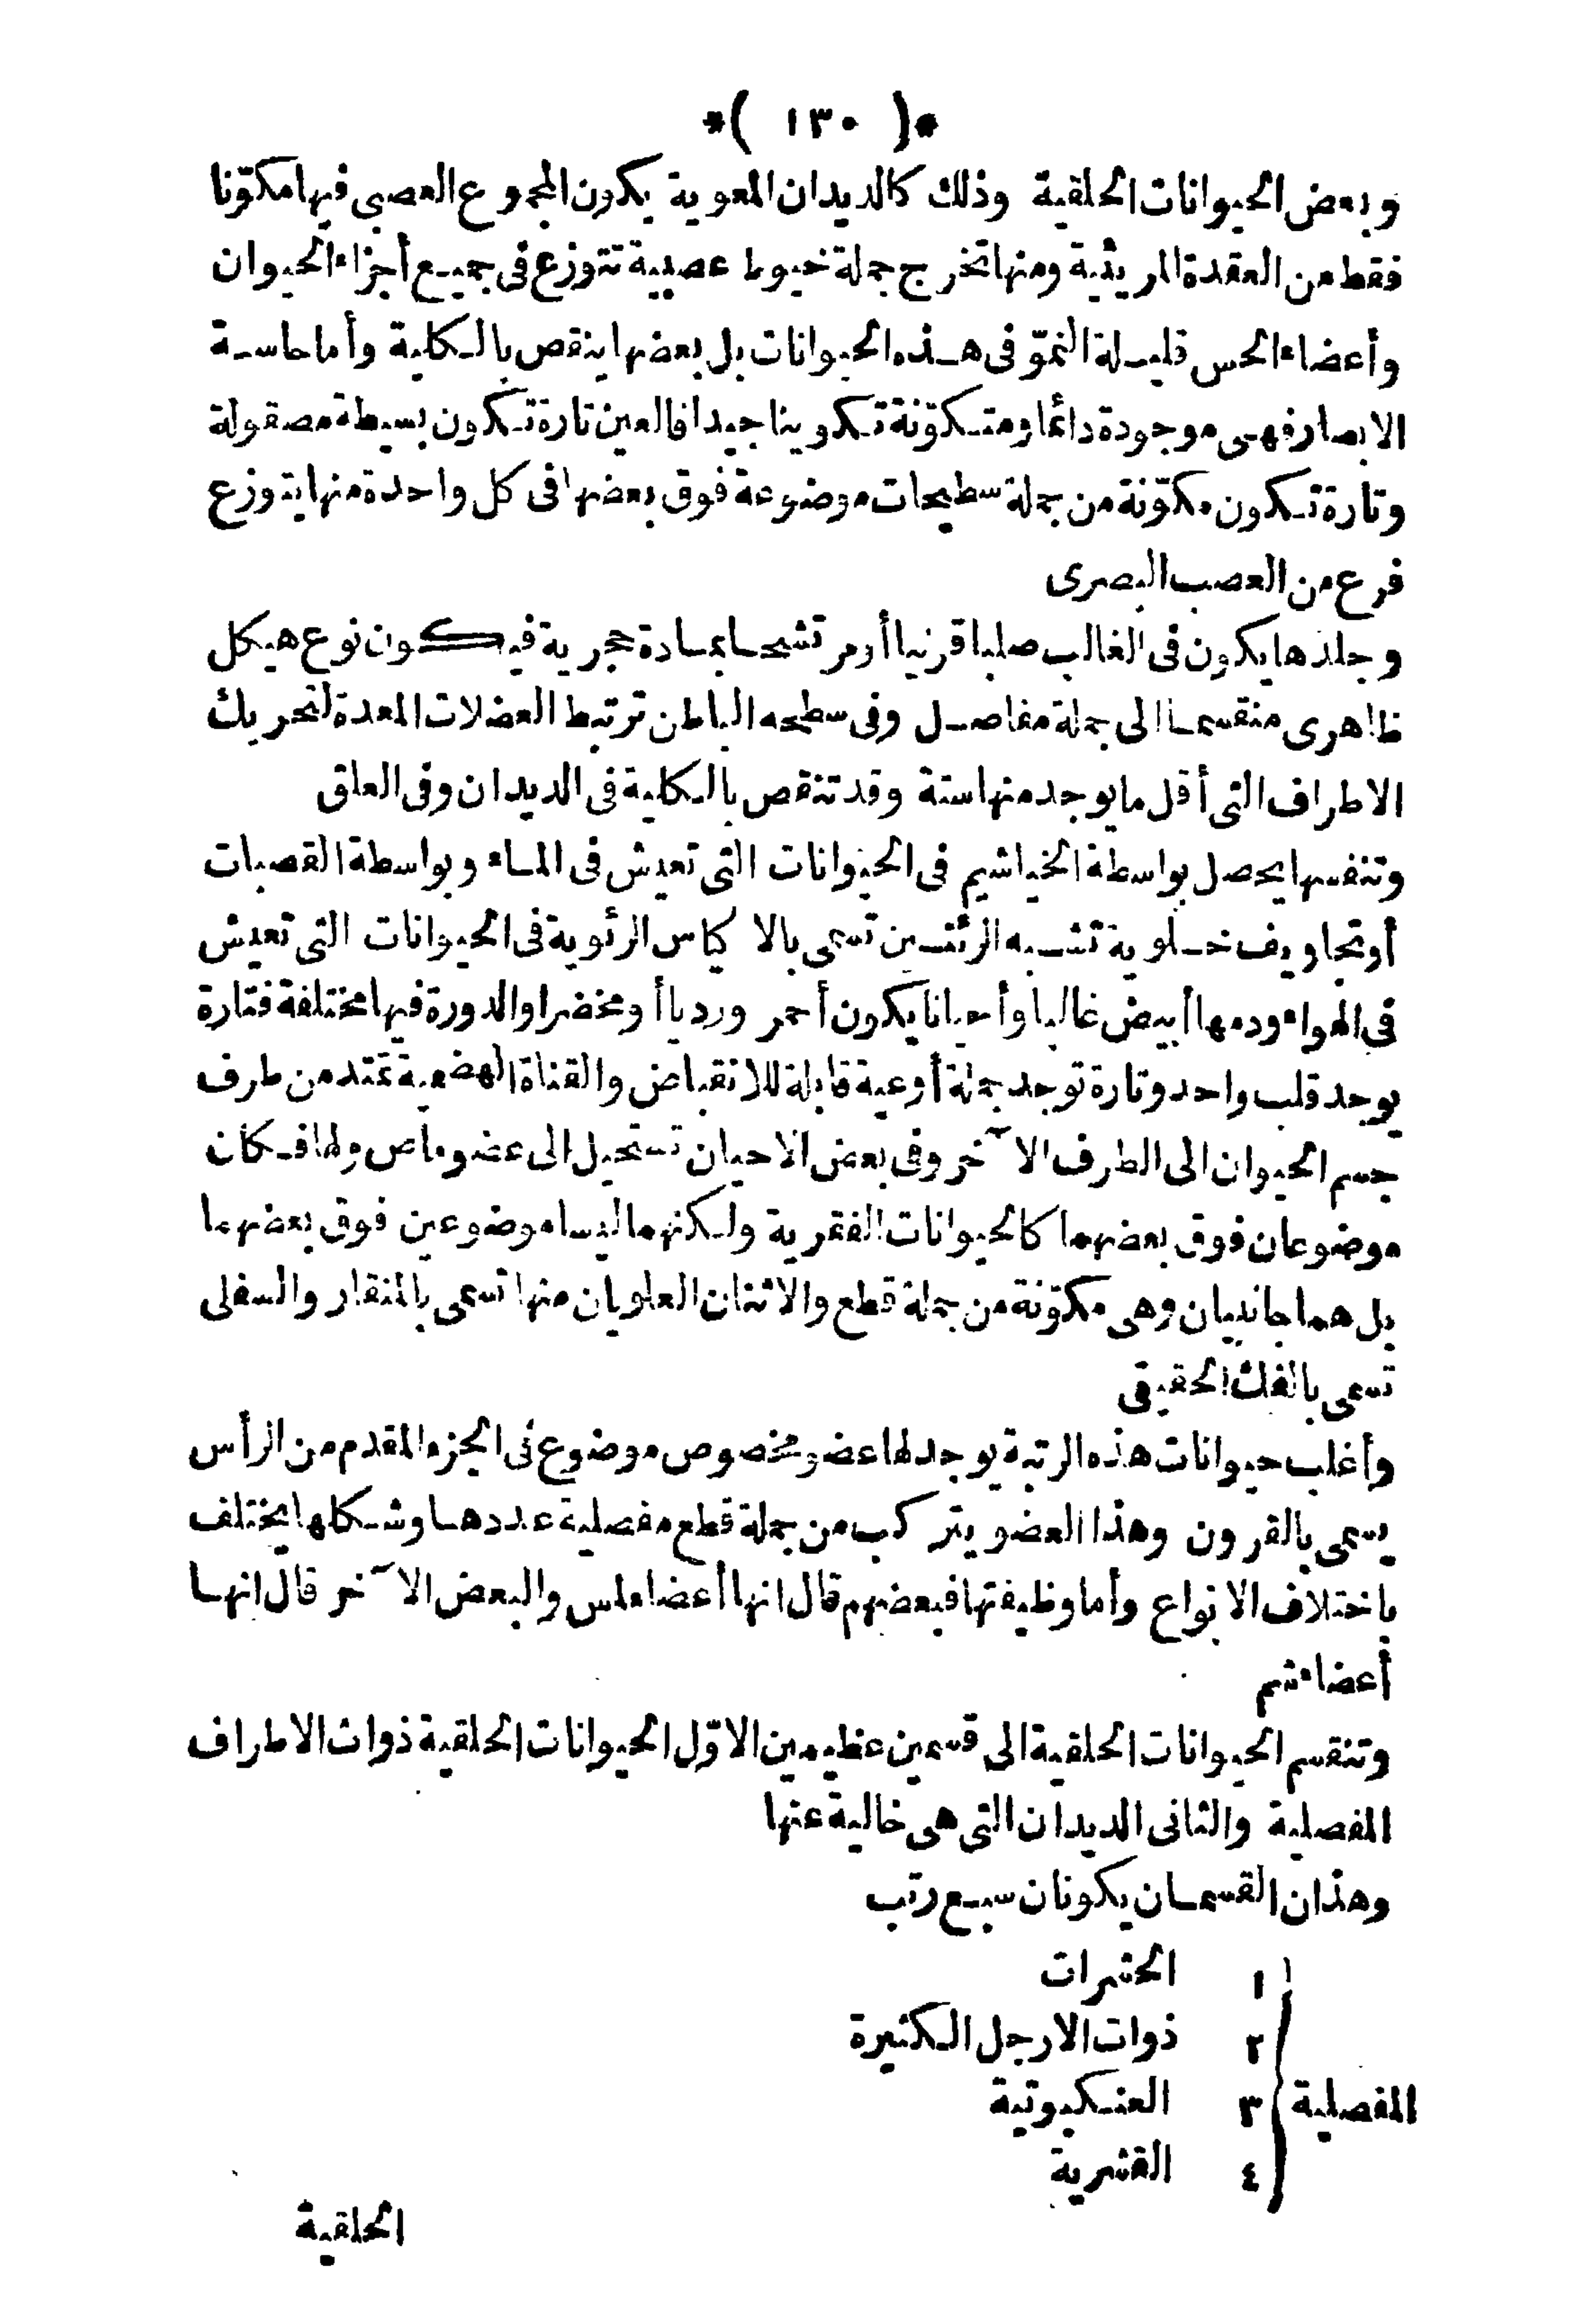 *( ١٣٠ )*
وبعض الحيوانات الحلقية وذلك كالديدان المعوية يكون المجموع العصبى فيها مكوّنا
فقط من العقدة المريئية ومنها تخرج جملة خيوط عصبية تتوزع فى جميع أجزاء الحيوان
وأعضاء الحس قليلة النموّ فى هذه الحيوانات بل بعضها ينقص بالكلية وأما حاسة
الابصار فهى موجودة دائما ومتكوّنة تكوينا جيدا فالعين تارة تكون بسيطة مصقولة
وتارة تكون مكوّنة من جملة سطيحات موضوعة فوق بعضها فى كل واحدة منها يتوزع
فرع من العصب البصرى
وجلدها يكون فى الغالب صلبا قرنيا أو مرتشحا بمادة حجرية فيكون نوع هيكل
ظاهرى منقسما الى جملة مفاصل وفى سطحه الباطن ترتبط العضلات المعدة لتحريك
الاطراف التى أقل ما يوجد منها ستة وقد تنقص بالكلية فى الديدان وفى العلق
وتنفسها يحصل بواسطة الخياشيم فى الحيوانات التى تعيش فى الماء وبواسطة القصبات
أو تجاويف خلوية تشبه الرئتين تسمى بالاكياس الرئوية فى الحيوانات التى تعيش
فى الهواء ودمها أبيض غالبا وأحيانا يكون أحمر ورديا أو مخضرا والدورة فيها مختلفة فتارة
يوجد قلب واحد وتارة توجد جملة أوعية قابلة للانقباض والقناة الهضمية تمتد من طرف
جسم الحيوان الى الطرف الآخر وفى بعض الاحيان تستحيل الى عضو ماص ولها فكان
موضوعان فوق بعضهما كالحيوانات الفقرية ولكنهما ليسا موضوعين فوق بعضهما
بل هما جانبيان وهى مكوّنة من جملة قطع والاثنتان العلويان منها تسمى بالمنقار والسفلى
تسمى بالفك الحقيقى
وأغلب حيوانات هذه الرتبة يوجد لها عضو مخصوص موضوع فى الجزء المقدم من الرأس
يسمى بالقرون وهذا العضو يتركب من جملة قطع مفصلية عددها وشكلها يختلف
باختلاف الانواع وأما وظيفتها فبعضهم قال انها أعضاء لمس والبعض الآخر قال انها
أعضاء شم
وتنقسم الحيوانات الحلقية الى قسمين عظيمين الاوّل الحيوانات الحلقية ذوات الاطراف
المفصلية والثانى الديدان التى هى خالية عنها
وهذان القسمان يكونان سبع رتب
١ الحشرات
٢ ذوات الارجل الكثيرة
المفصلية ٣ العنكبوتية
٤ القشرية
الحلقية